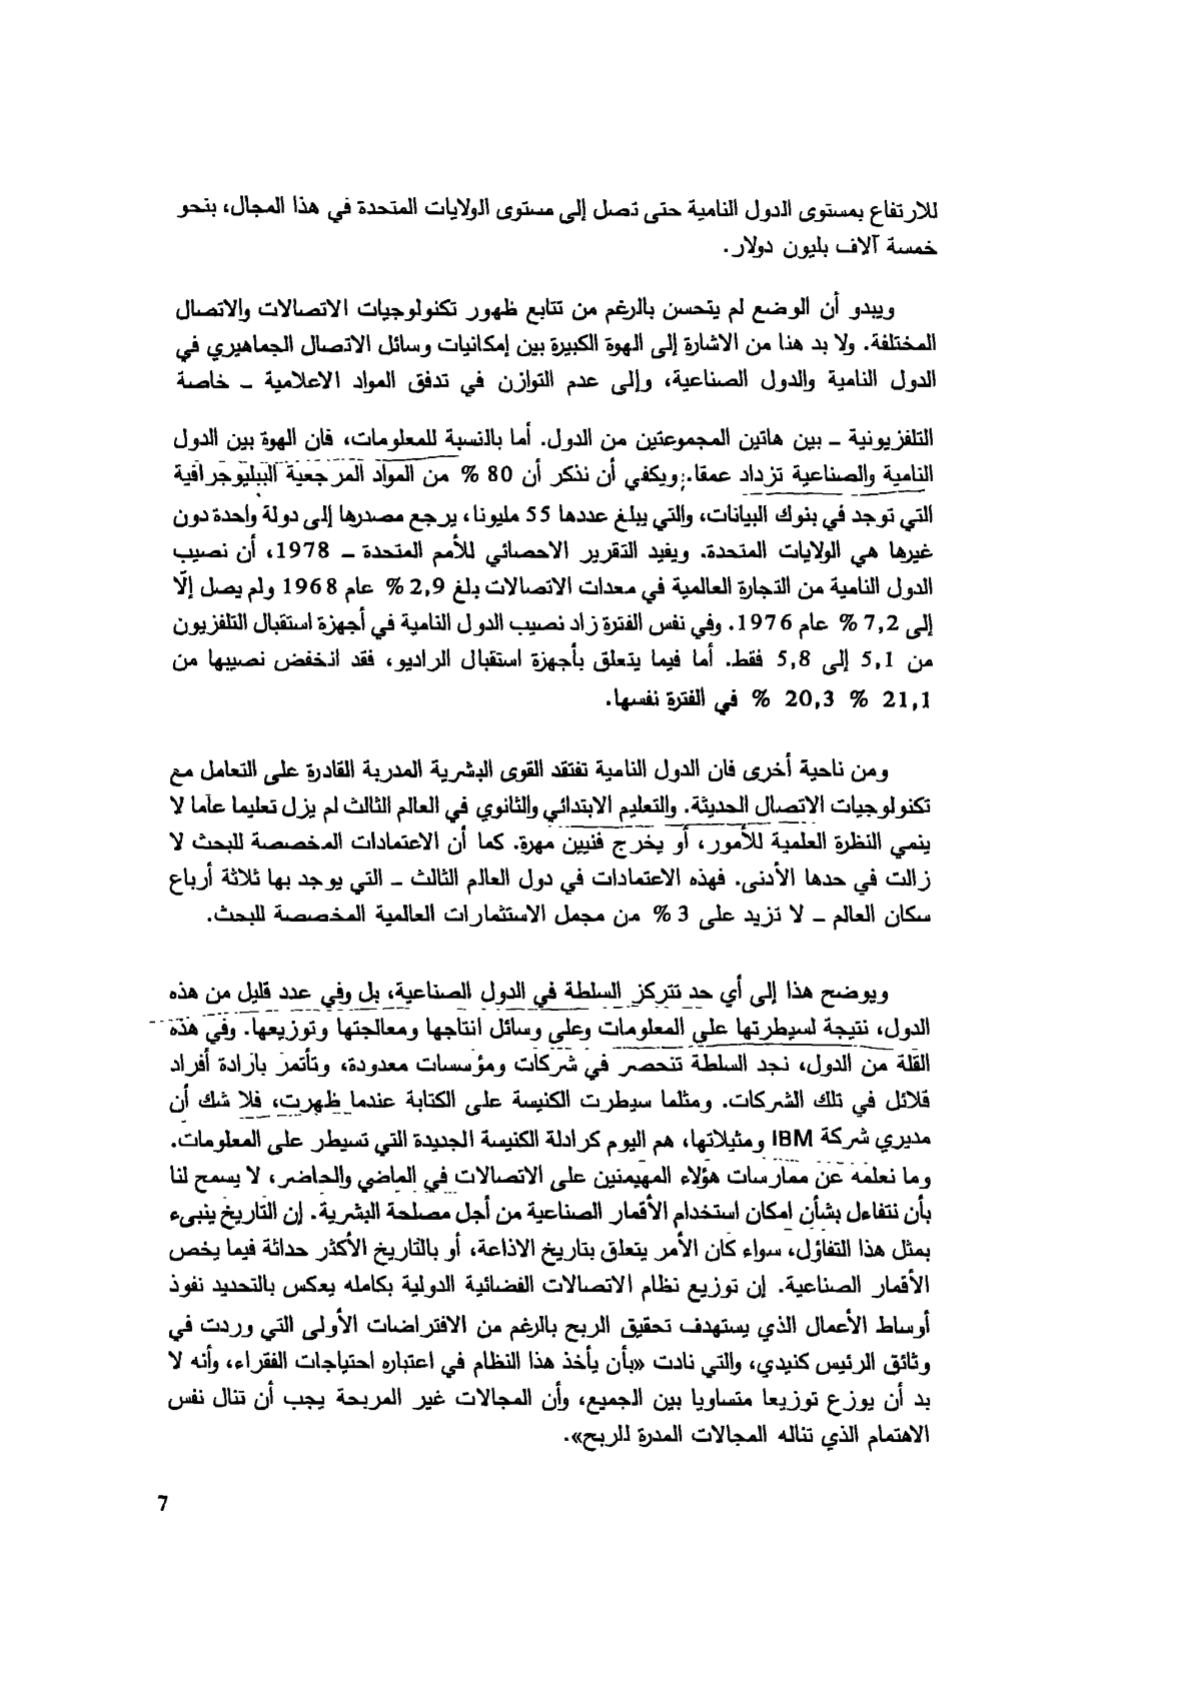 للارتفاع بمستوى الدول النامية حتى تصل إلى مستوى الولايات المتحدة في هذا المجال، بنحو
خمسة آلاف بليون دولار.
ويبدو أن الوضع لم يتحسن بالرغم من تتابع ظهور تكنولوجيات الاتصالات والاتصال
المختلفة. ولا بد هنا من الاشارة إلى الهوة الكبيرة بين إمكانيات وسائل الاتصال الجماهيري في
الدول النامية والدول الصناعية، وإلى عدم التوازن في تدفق المواد الاعلامية – خاصة
التلفزيونية – بين هاتين المجموعتين من الدول. أما بالنسبة للمعلومات، فان الهوة بين الدول
النامية والصناعية تزداد عمقا. ويكفي أن نذكر أن 80 % من المواد المرجعية الببليوجرافية
التي توجد في بنوك البيانات، والتي يبلغ عددها 55 مليونا، يرجع مصدرها إلى دولة واحدة دون
غيرها هي الولايات المتحدة. ويفيد التقرير الاحصائي للأمم المتحدة – 1978، أن نصيب
الدول النامية من التجارة العالمية في معدات الاتصالات بلغ 2,9 % عام 1968 ولم يصل إلّا
إلى 7,2 % عام 1976. وفي نفس الفترة زاد نصيب الدول النامية في أجهزة استقبال التلفزيون
من 5,1 إلى 5,8 فقط. أما فيما يتعلق بأجهزة استقبال الراديو، فقد انخفض نصيبها من
21,1 % 20,3 % في الفترة نفسها.
ومن ناحية أخرى فان الدول النامية تفتقد القوى البشرية المدربة القادرة على التعامل مع
تكنولوجيات الاتصال الحديثة. والتعليم الابتدائي والثانوي في العالم الثالث لم يزل تعليما عاما لا
ينمي النظرة العلمية للأمور، أو يخرج فنيين مهرة. كما أن الاعتمادات المخصصة للبحث لا
زالت في حدها الأدنى. فهذه الاعتمادات في دول العالم الثالث – التي يوجد بها ثلاثة أرباع
سكان العالم – لا تزيد على 3 % من مجمل الاستثمارات العالمية المخصصة للبحث.
ويوضح هذا إلى أي حد تتركز السلطة في الدول الصناعية، بل وفي عدد قليل من هذه
الدول، نتيجة لسيطرتها على المعلومات وعلى وسائل انتاجها ومعالجتها وتوزيعها. وفي هذه
القلة من الدول، نجد السلطة تنحصر في شركات ومؤسسات معدودة، وتأتمر بارادة أفراد
قلائل في تلك الشركات. ومثلما سيطرت الكنيسة على الكتابة عندما ظهرت، فلا شك أن
مديري شركة IBM ومثيلاتها، هم اليوم كرادلة الكنيسة الجديدة التي تسيطر على المعلومات.
وما نعلمه عن ممارسات هؤلاء المهيمنين على الاتصالات في الماضي والحاضر، لا يسمح لنا
بأن نتفاءل بشأن امكان استخدام الأقمار الصناعية من أجل مصلحة البشرية. إن التاريخ ينبىء
بمثل هذا التفاؤل، سواء كان الأمر يتعلق بتاريخ الاذاعة، أو بالتاريخ الأكثر حداثة فيما يخص
الأقمار الصناعية. إن توزيع نظام الاتصالات الفضائية الدولية بكامله يعكس بالتحديد نفوذ
أوساط الأعمال الذي يستهدف تحقيق الربح بالرغم من الافتراضات الأولى التي وردت في
وثائق الرئيس كنيدي، والتي نادت «بأن يأخذ هذا النظام في اعتباره احتياجات الفقراء، وأنه لا
بد أن يوزع توزيعا متساويا بين الجميع، وأن المجالات غير المربحة يجب أن تنال نفس
الاهتمام الذي تناله المجالات المدرة للربح».
7